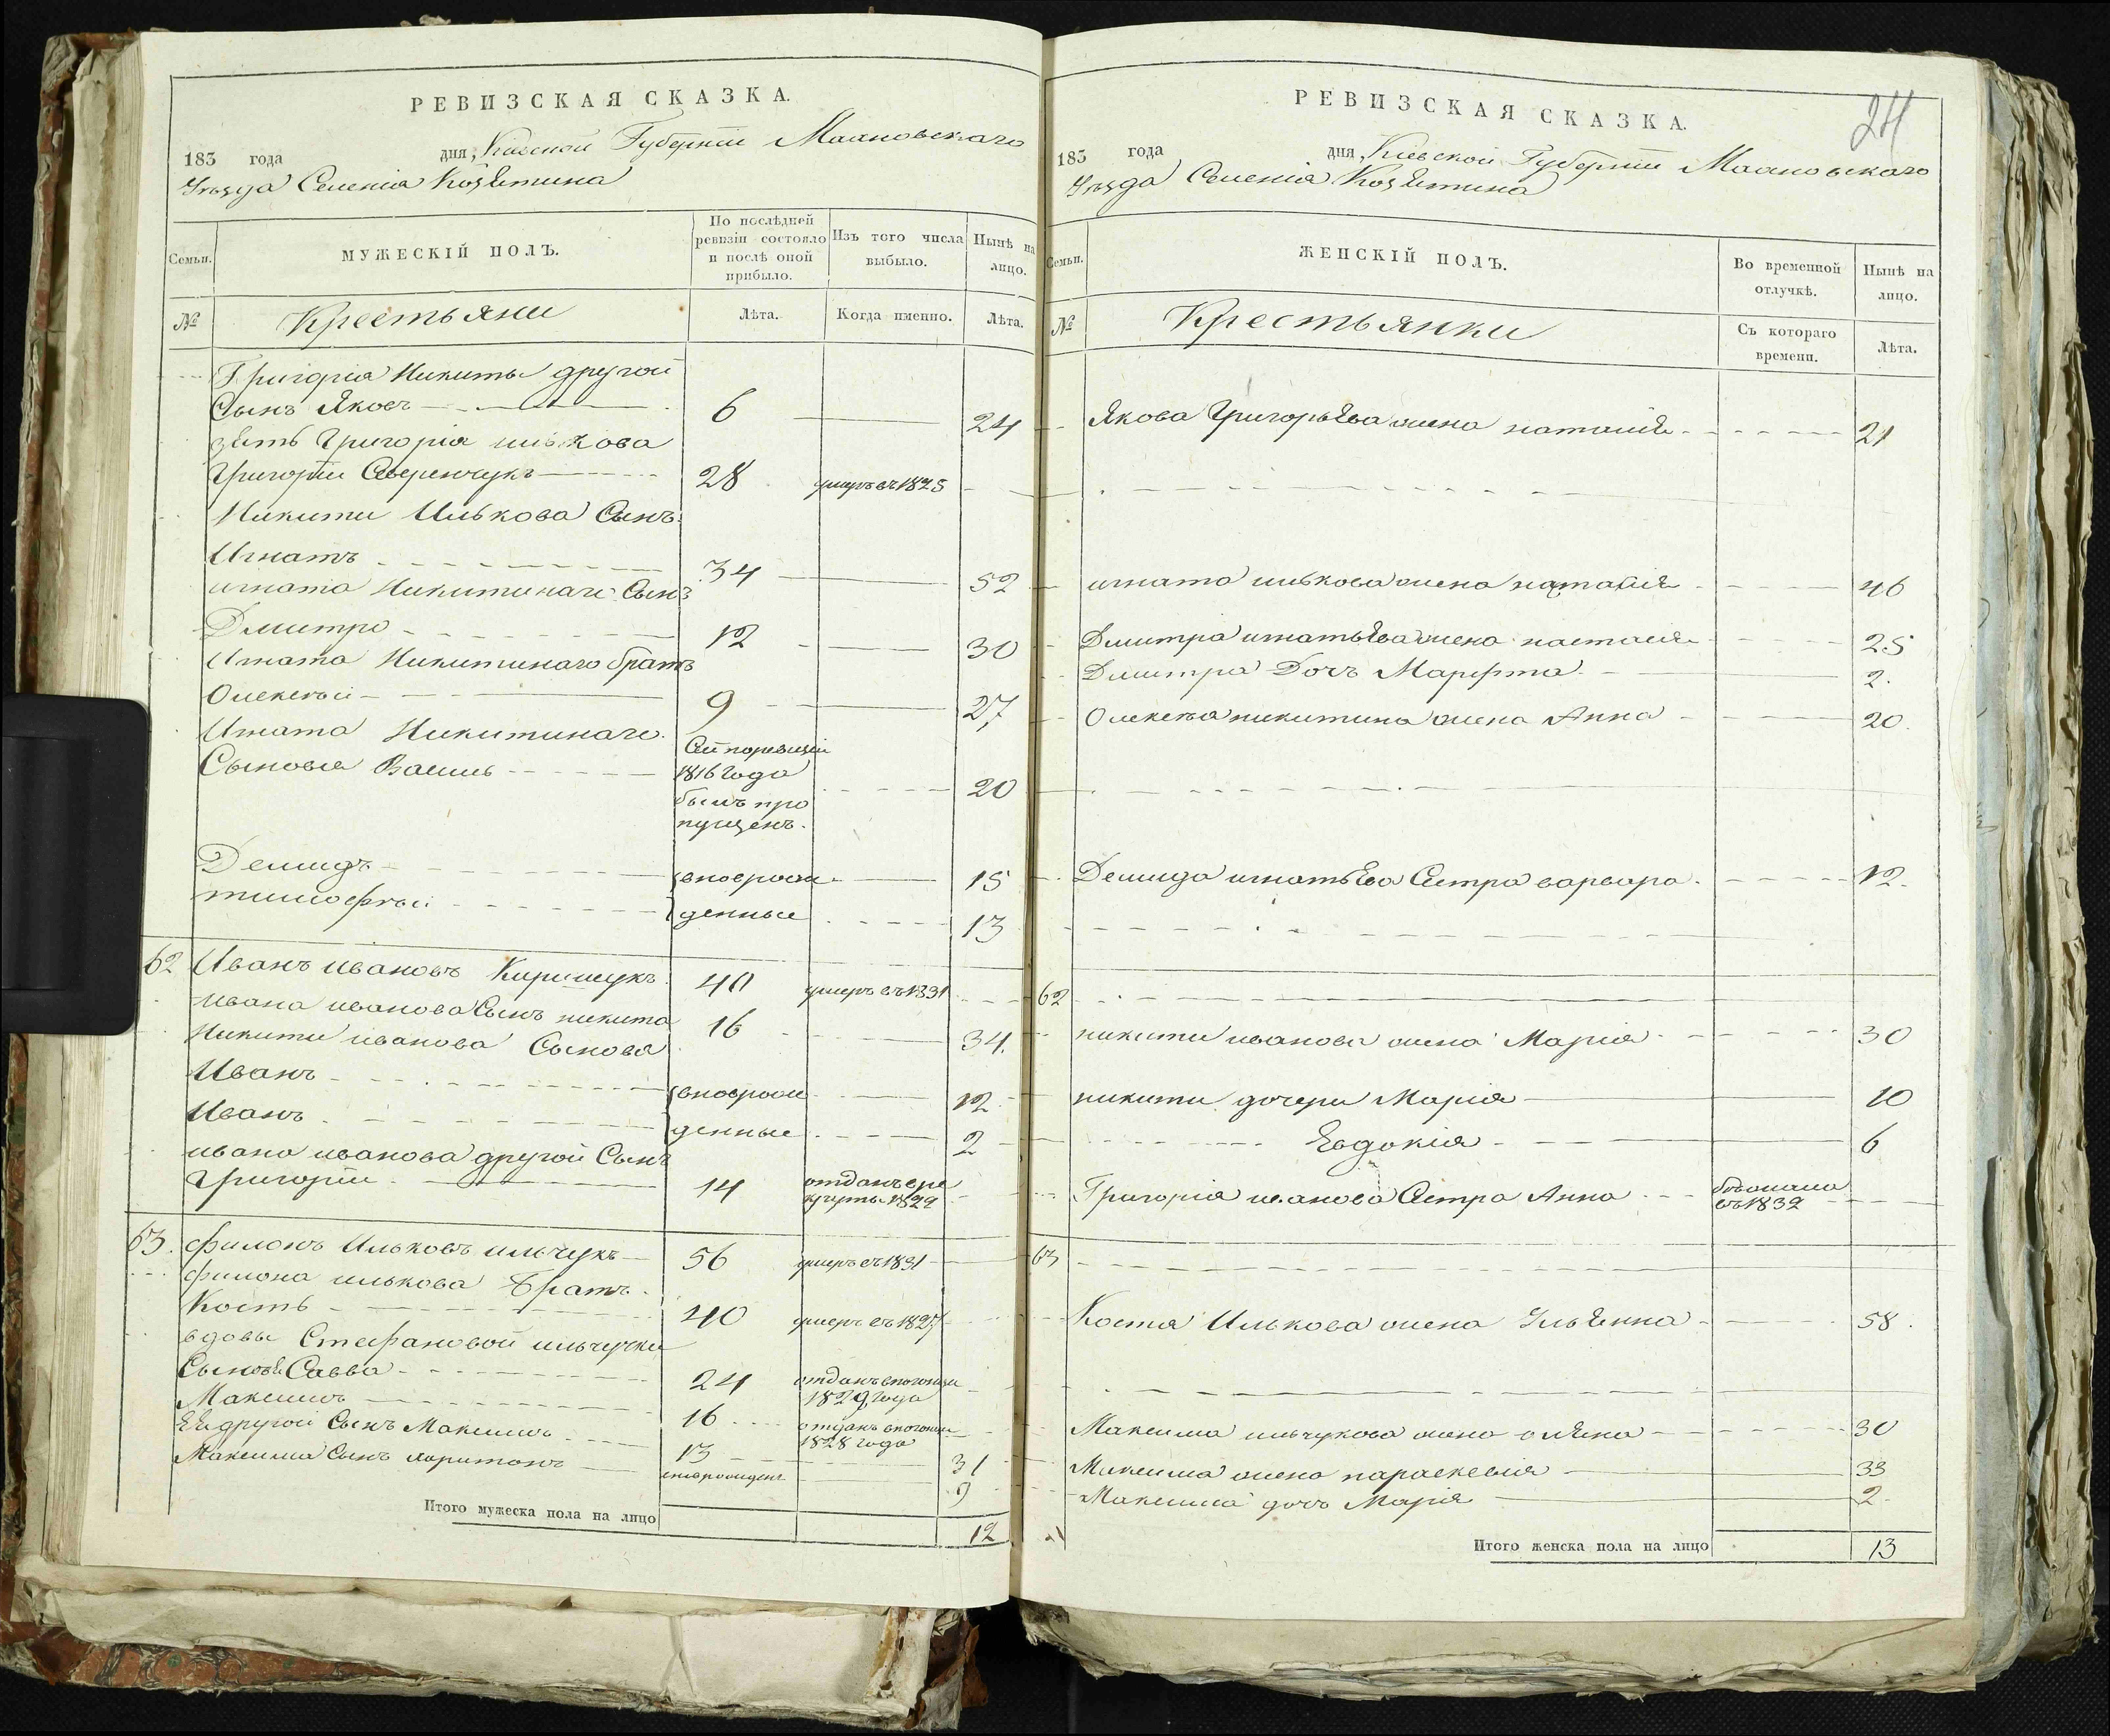 РЕВИЗСКАЯ СКАЗКА.
183 года дня, Кіевской Губерніи Махновскаго
Уѣзда Селенія Козѣтина
Семьи.
МУЖЕСКІЙ ПОЛЪ.
По послѣдней ревизіи состояло и послѣ оной прибыло.
Изъ того числа выбыло.
Нынѣ на лицо.
№
Крестьяни
Лѣта.
Когда именно.
Лѣта.
Григорія Никиты другой
Сынъ Яковъ 6 24
зять Григорія илькова
Григорій 28 умеръ въ 1825
Никити Илькова Сынъ
Игнатъ 34 52
игната Никитинаго Сынъ
Дмитро 12 30
Игната Никитинаго братъ
Олексѣй 9 27
Игната Никитинаго
Сыновья Василь 20
Сей по ревизіи
1816 года
былъ про
пущенъ.
Демидъ вноврож 15
тимофѣй денные 13
62 Иванъ ивановъ Киришукъ 40 умеръ въ 1831
ивана иванова Сынъ никита 16 34.
Никити иванова Сыновя
Иванъ вноврож 12
Иванъ денные 2
ивана иванова другой Сынъ
Григорій 14 отданъ вре
круты 1829
63. филонъ Ильковъ ильчукъ 56 умеръ въ 1831
филона илькова Братъ
Кость 40 умеръ въ 1827
вдовы Стефановой ильчучки
Сыновѣ Савва 24
1829 года
Максимъ 16
1828 года
Еѣ другой Сынъ Максимъ 13 31
Максима Сынъ харитонъ 9
Итого мужеска пола на лицо 12
РЕВИЗСКАЯ СКАЗКА.
24
183 года дня, Кіевской Губерніи Махновскаго
Уѣзда Селенія Козѣтина
Семьи.
ЖЕНСКІЙ ПОЛЪ.
Во временной отлучкѣ.
Нынѣ на лицо.
№
Крестьянки
Съ котораго времени.
Лѣта.
Якова Григорьѣва жена 21
игната илькова жена наталія 46
Дмитра игнатьѣва жена настасія 25
Дмитра Дочъ Марфта 2.
Олексѣя никитина жена Анна 20.
Демида игнатьѣва Сестра варвара 12.
62
никити иванова жена Марія 30
никити дочери Марія 10
Евдокія 6
Григорія иванова Сестра Анна бѣжала
въ 1832
63
Костя Илькова жена Ульѣнна 58.
Максима ильчукова жена олѣна 30
Максима жена параскевія 33
Максима дочъ Марія 2
Итого женска пола на лицо 13